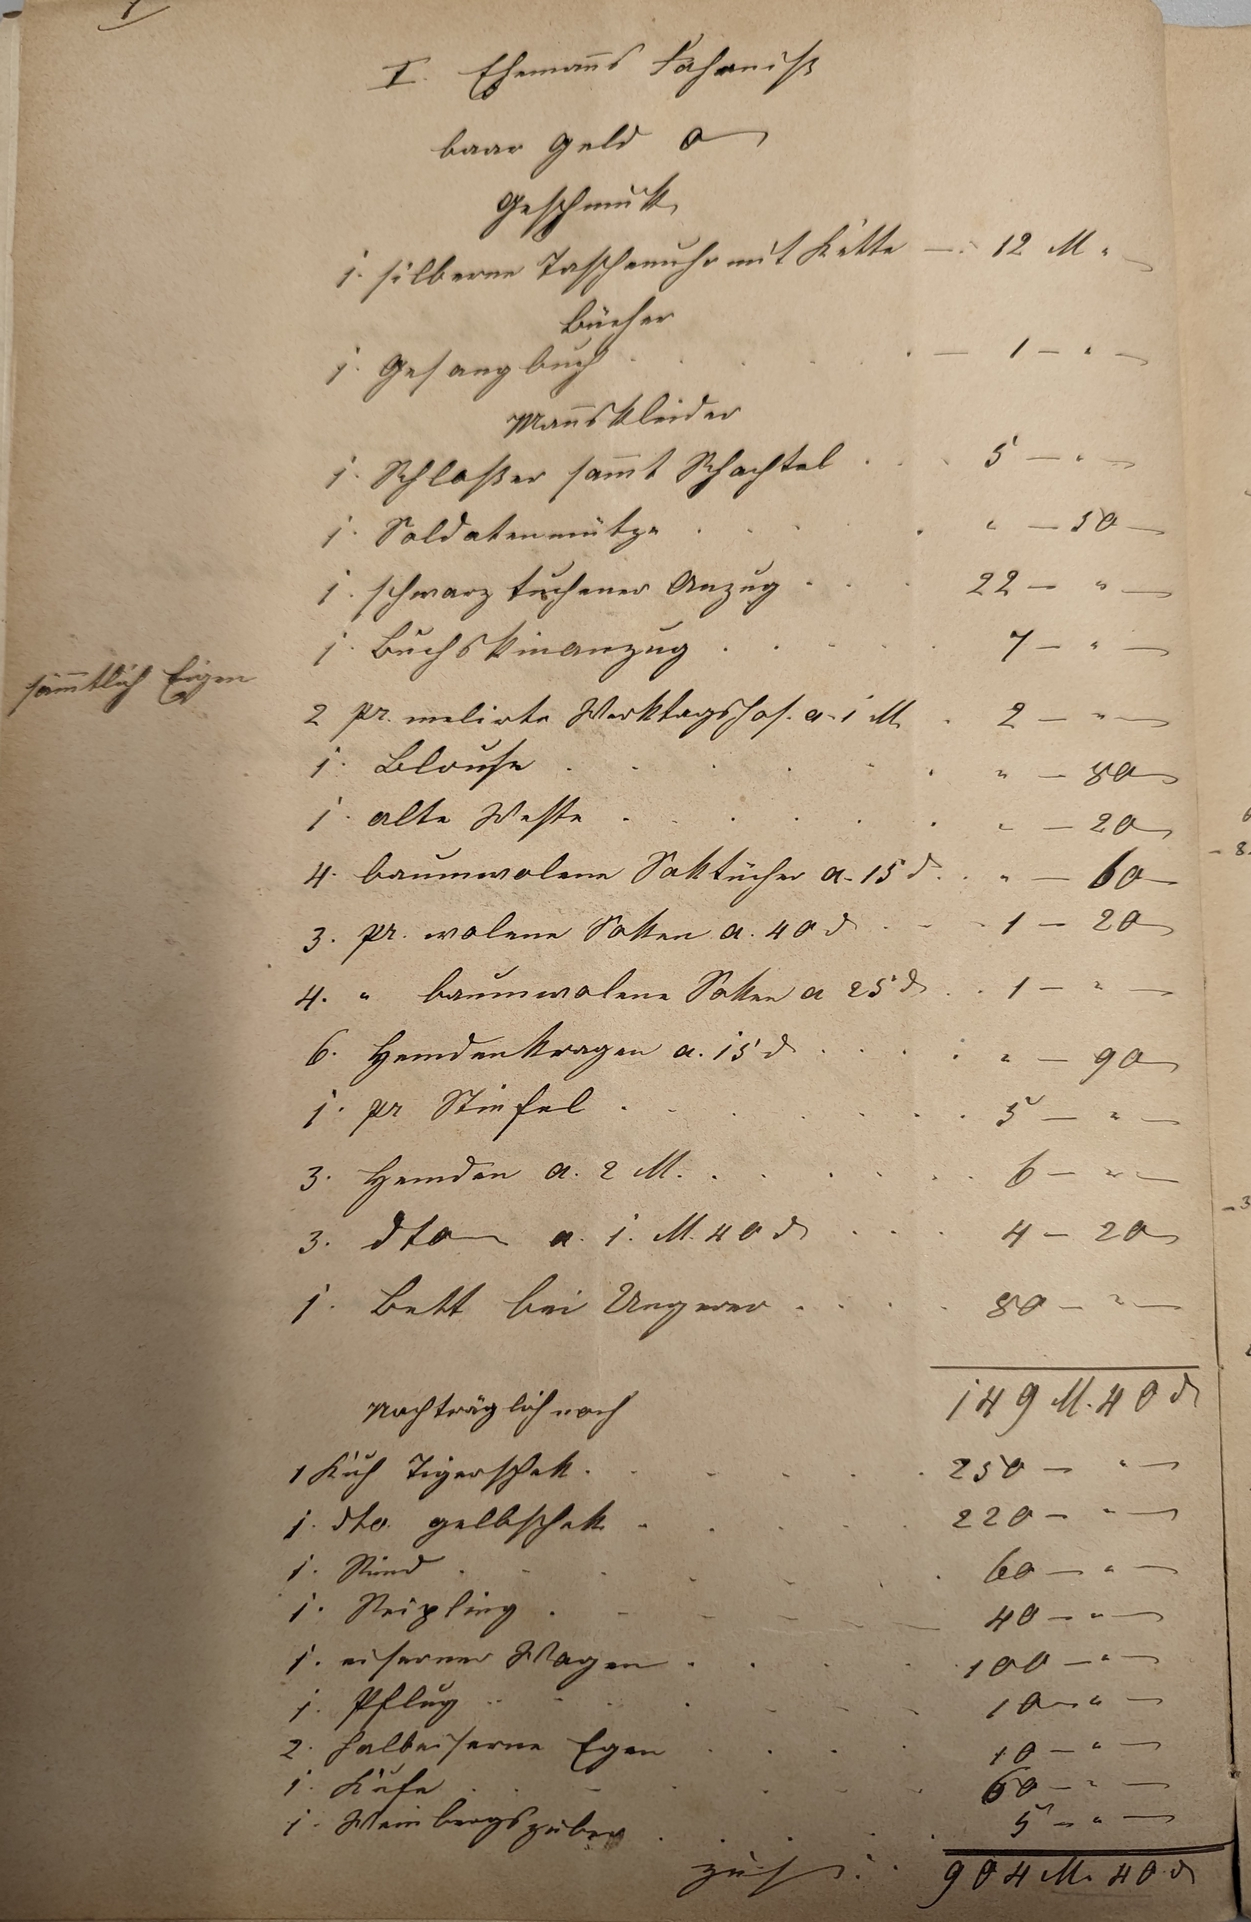 I. Ehemanns Fahrniß
baar Geld 0
Geschmuk
1. silberne Taschenuhr mit Kette — 12 M "
Bücher
1. Gesangbuch . . . . — 1 — " —
Mannskleider
1. Schloßer sammt Schachtel . . . 5 — " —
1. Soldatenmütze . . . . " — 50 —
1. schwarz tuchener Anzug . . . 22 — " —
1. Buchskinanzug . . . . 7 — " —
sämmtlich Eigen
2 pr. melirte Werktagshos. a. 1 M . 2 — " —
1. Blouse . . . . . . " — 80
1. alte Weste . . . . . . " — 20
4. baumwolene Saktücher a. 15 d. . " — 60 —
3. pr. wolene Soken a. 40 d . . . 1 — 20
4. " baumwolene Soken a 25 d . . 1 — " —
6. Hemdenkragen a. 15 d . . . . " — 90
1. pr Stiefel . . . . . . 5 — " —
3. Hemden a. 2 M. . . . . . 6 — " —
3. dto a. 1. M. 40 d . . . 4 — 20
1. Bett bei Ungerer . . . . 80 — " —
149 M. 40 d
Nachträglich noch
1 Kuh Tigerschek . . . . . . 250 — " —
1. dto. gelbschek . . . . . 220 — " —
1. Rind . . . . . . 60 — " —
1. . . . . . 40 — " —
1. eiserner Wagen . . . . 100 — " —
1. Pflug . . . . . 10 — " —
2. halbeiserne Egen . . . . 10 — " —
1. Kufe . . . . . 60 — " —
1. Weinbergszuber . . . . 5 — " —
zus. : . 904 M. 40 d